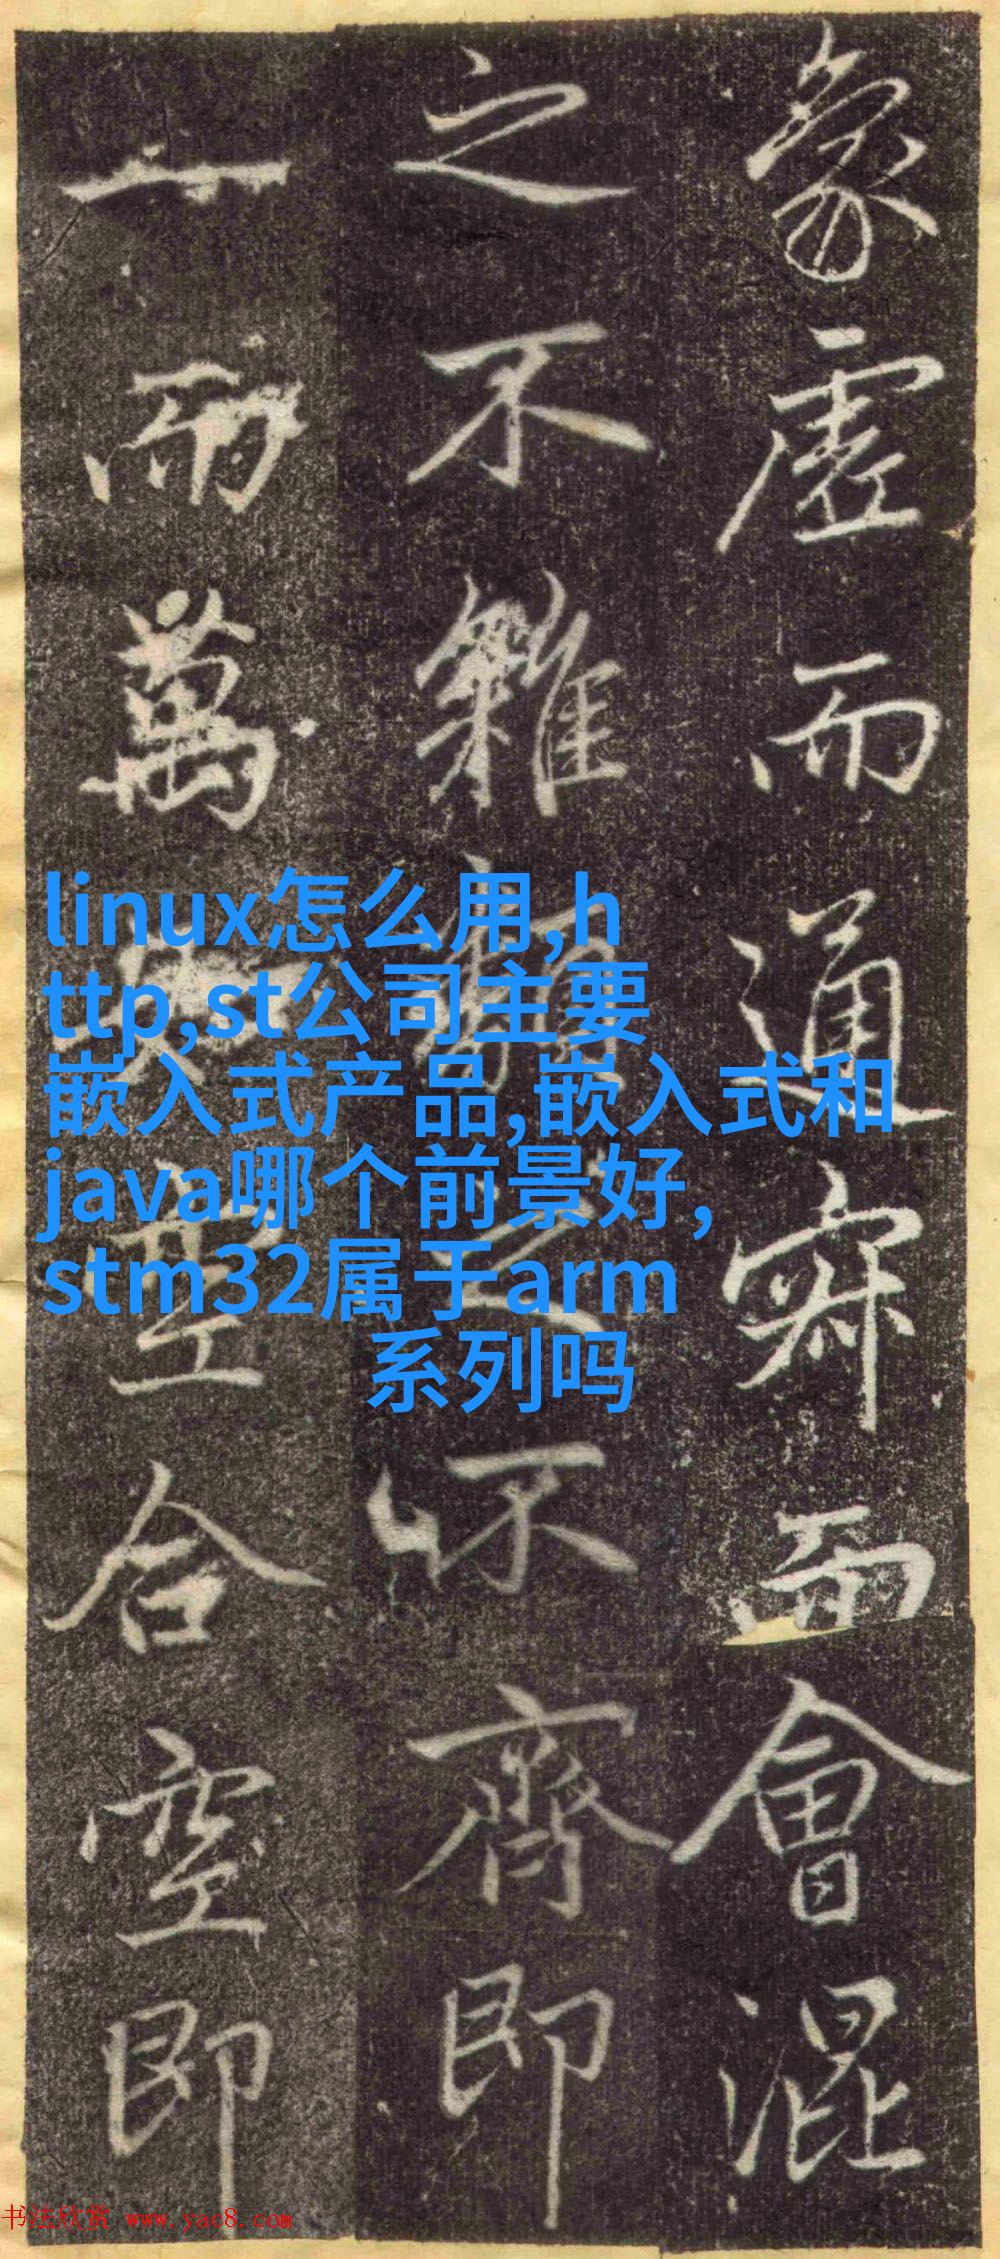 象虚而通寂而會混
之不雜
不齊即
一而萬
空合空即
linux怎么用,h
ttp,st公司主要
嵌入式产品,嵌入式和
java哪个前景好,
stm32属于arm
系列吗
书法欣赏 www.yac8.com